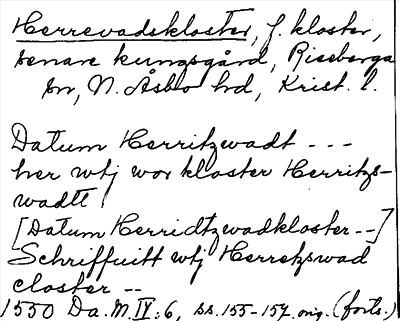 Herrevadskloster, f. kloster,
senare kungsgård, Riseberga
sn, N. Åsbo hd, Krist. l.
Datum Herritzwadt - - -
her wtj wor kloster Herritzs-
wadtt
[Datum Herridtzwadkloster--]
Schriffuitt wtj Herretzwad
closter --
1550 Da. M. IV:6, ss. 155-157. orig. (forts.)